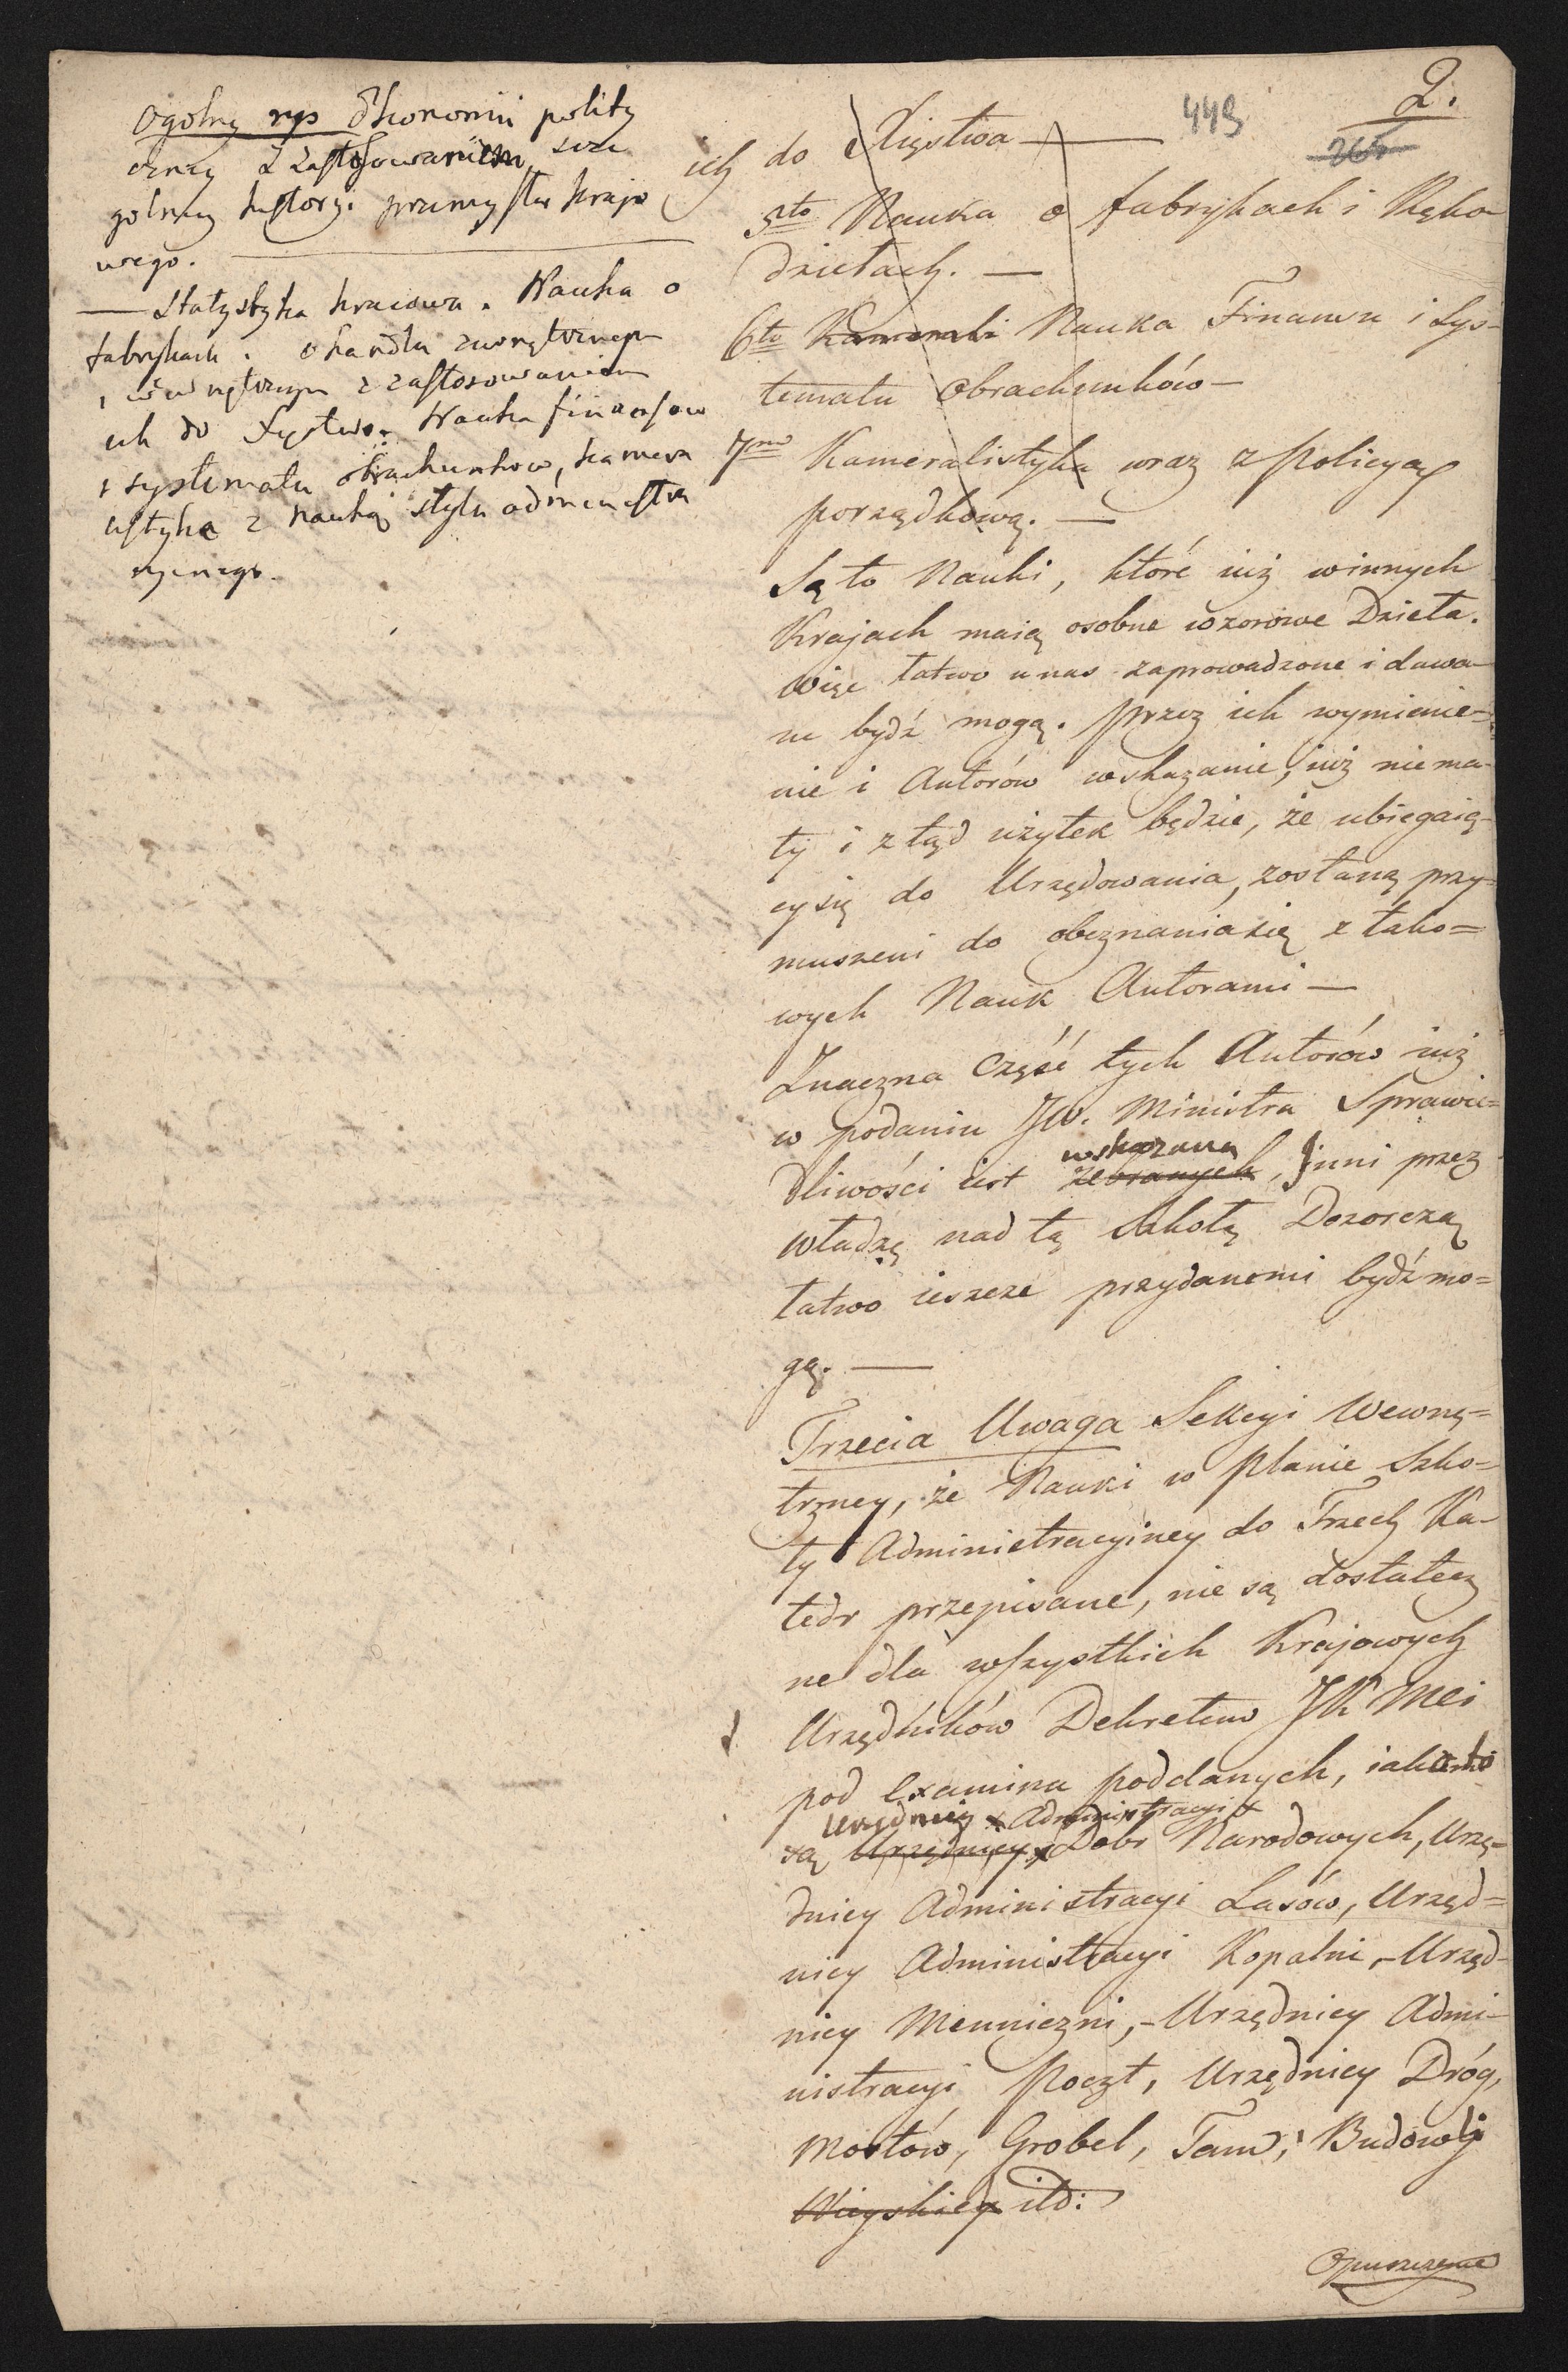 2.
449
265
Ogolny rys Ekonomii polity
czney z zastosowaniem szcze
golney history. przemysłu krajo
wego. —
— Statystyka kraiowa. Nauka o
fabrykach. o handlu zewnętrznym
i wewnętrznym z zastosowaniem
ich do Xięstwa. Nauka finansow
i systematu obrachunkow, kamera
listyka z nauką stylu administra
cyinego.
ich do Xięstwa —
5to Nauka o fabrykach i Ręko
dziełach. —
6to Kameral Nauka Finansu i Sys-
tematu Obrachunków —
7mo Kameralistyka wraz z Policyą
porządkową. —
Są to Nauki, które iuż w innych
Krajach maią osobne wzorowe Dzieła.
Więc łatwo u nas zaprowadzone i dawa-
ne bydź mogą. Przez ich wymienie-
nie i Autorów wskazanie, iuż nie ma-
ły i z tąd użytek będzie, że ubiegaią-
cy się do Urzędowania, zostaną przy-
muszeni do obeznania się z tako=
wych Nauk Autorami —
Znaczna Część tych Autorów iuż
w podaniu JW. Ministra Sprawie=
wskazana
dliwości iest zebranych, Jnni przez
władzę nad tą Szkołą Dozorczą
łatwo ieszcze przydanemi bydź mo=
gą. —
Trzecia Uwaga Sekcyi Wewnę=
trzney, że Nauki w planie Szko=
ły Administracyiney do Trzech Ka-
tedr przepisane, nie są dostatecz
ne dla wszystkich Krajowych
Urzędników Dekretem JK Mci
pod Examina poddanych, iako to
Urzędnicy Administracyi
są Urzędnicy Dobr Narodowych, Urzę=
dnicy Administracyi Lasów, Urzęd=
nicy Administracyi Kopalni, - Urzęd-
nicy Menniczni, - Urzędnicy Admi-
nistracyi Poczt, Urzędnicy Dróg,
Mostów, Grobel, Tam, Budowli
Wieyskiey itd:
Opuszczenie